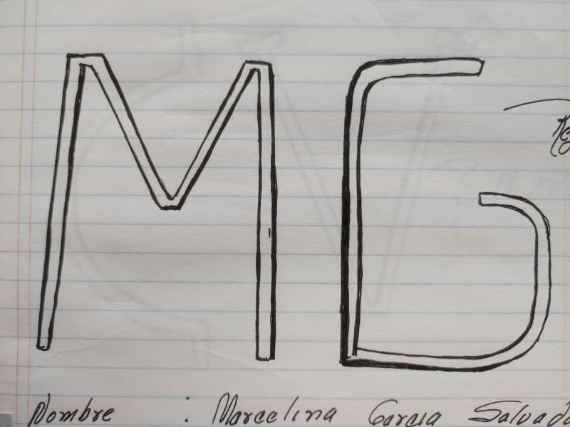 MG
Nombre : Marcelina Garcia Salvado